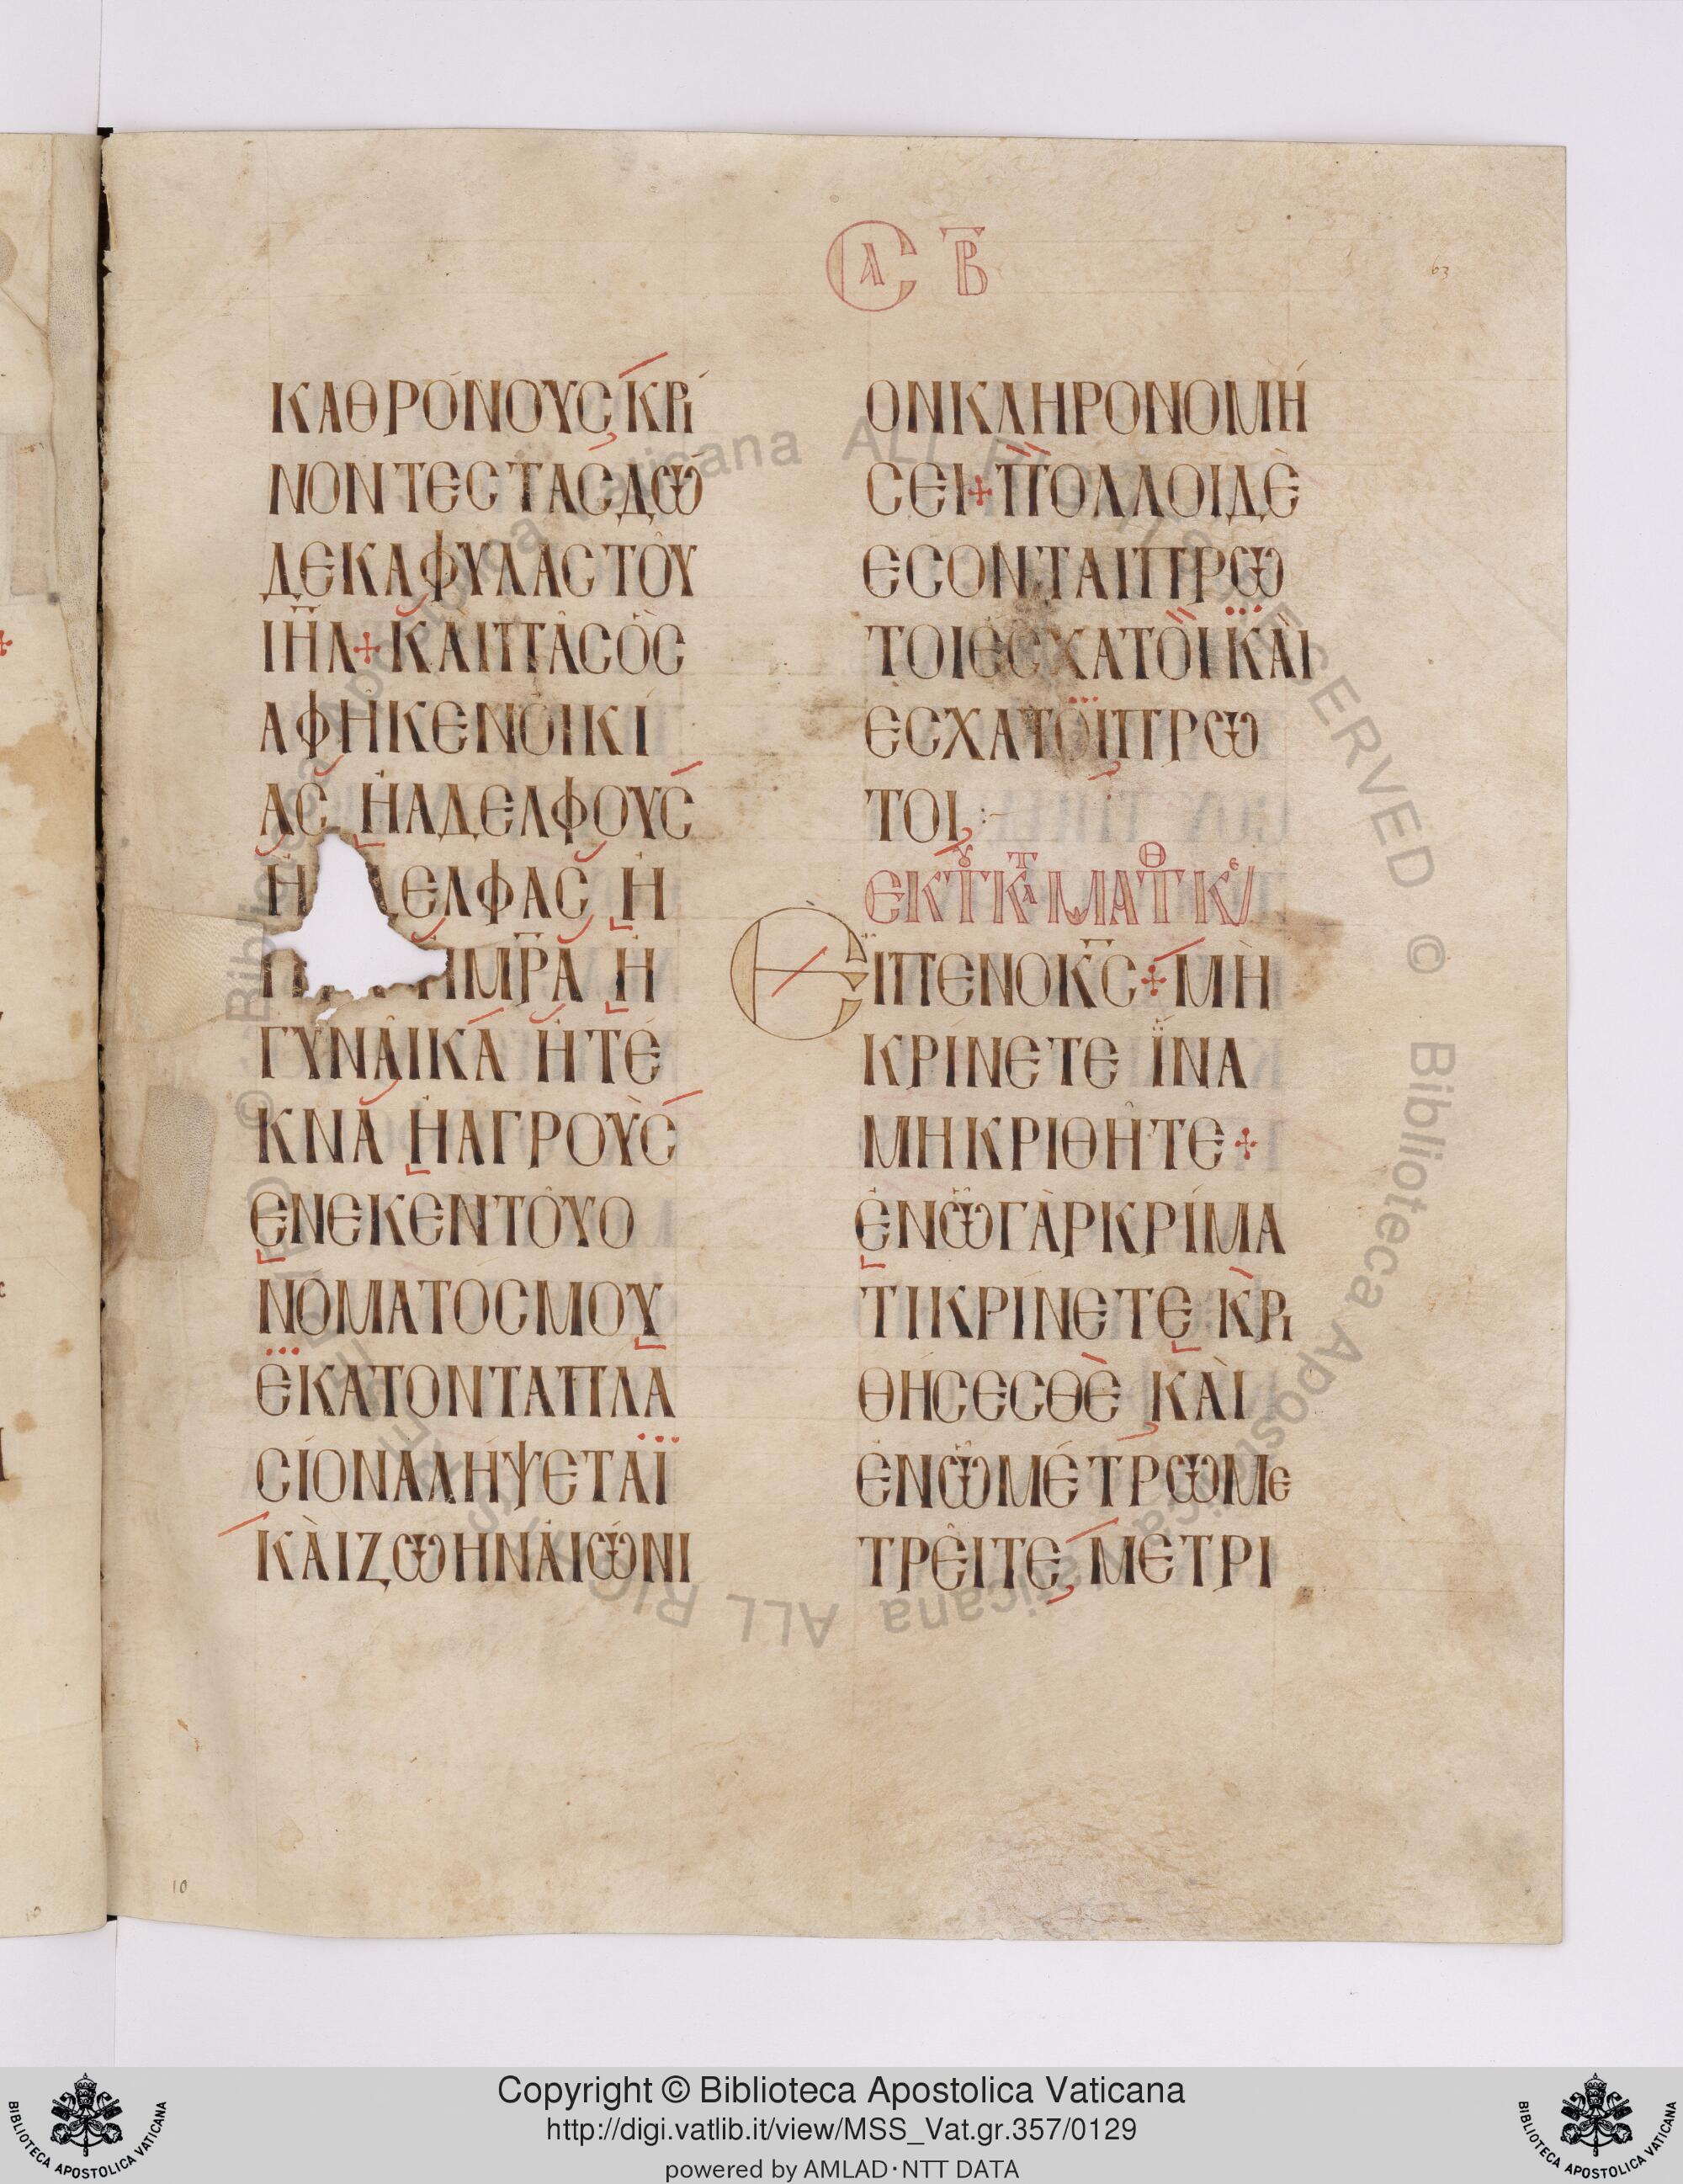 ⲤΑ Β̅
63
ΚΑΘΡΌΝΟΥϹ ΚΡΊ
ΝΟΝΤΕϹ ΤᾺϹ ΔΏ
ΔΕΚΑ ΦΥΛᾺϹ ΤΟΥ͂
ΙΗ̅Λ + ΚΑῚ ΠΑ͂Ϲ ὋϹ
ἈΦΗ͂ΚΕΝ ΟἸΚΊ
ΑϹ Ἢ ἈΔΕΛΦΟΥϹ
Ἢ ΔΕΛΦΑϹ Ἢ
ΗΜ̅ΡΑ Ἢ
ΓΥΝΑΙ͂ΚΑ Ἢ ΤΈ
ΚΝΑ Ἢ ἈΓΡΟῪϹ
ἝΝΕΚΕΝ ΤΟΥ͂ Ὀ
ΝΌΜΑΤΟϹ ΜΟΥ
ἙΚΑΤΟΝΤΑΠΛΑ
ϹΊΟΝΑ ΛΉΨΕΤΑΙ
ΚΑῚ ΖΩΗΝ ΑἸΏΝΙ
ΟΝ ΚΛΗΡΟΝΟΜΉ
ϹΕΙ + ΠΟΛΛΟΙ ΔῈ
ΕϹΟΝΤΑΙ ΠΡΩ͂
ΤΟΙ ΕϹΧΑΤΟΙ ΚΑῚ
ἘϹΧΑΤΟΙ ΠΡΩ͂
ΤΟΙ :~
ΕΚ Τ ΚΤ ΜΑΤΘ Κε
ΕἾΠΕΝ Ο Κ̅Ϲ + ΜῊ
ΚΡΊΝΕΤΕ ἽΝΑ
ΜΗ ΚΡΙΘΗ͂ΤΕ +
ἘΝ Ὧ ΓᾺΡ ΚΡΊΜΑ
ΤΙ ΚΡΊΝΕΤΕ ΚΡΙ
ΘΉϹΕϹΘΕ ΚΑῚ
ἘΝ Ὧ ΜΈΤΡΩ ΜΕ
ΤΡΕΙ͂ΤΕ ΜΕΤΡΙ
10
Copyright © Biblioteca Apostolica Vaticana
http://digi.vatlib.it/view/MSS_Vat.gr.357/0129
powered by AMLAD·NTT DATA
BIBLIOTECA APOSTOLICA VATICANA
BIBLIOTECA APOSTOLICA VATICANA